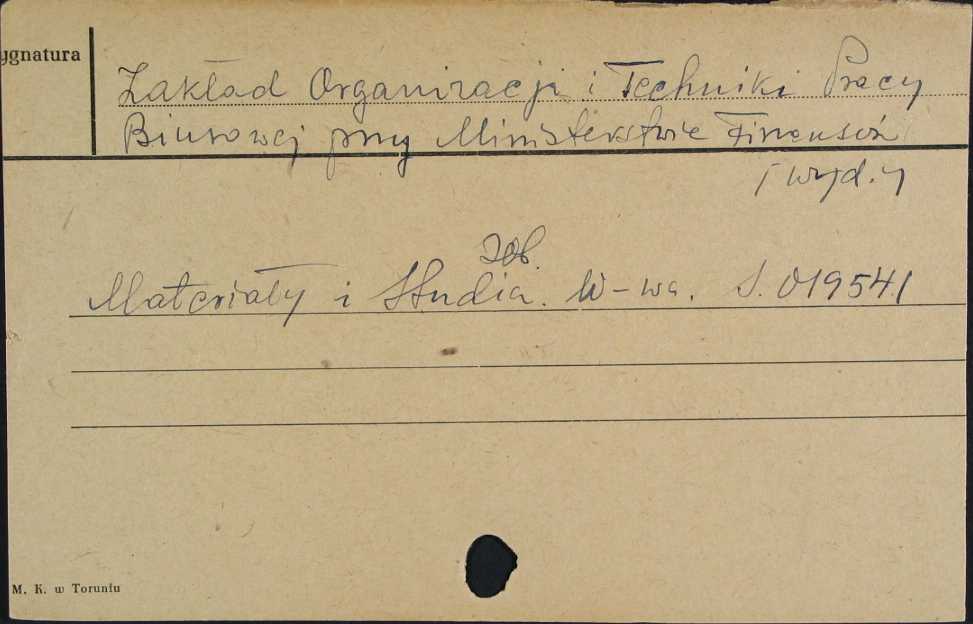 ygnatura
Zakład Organizacji i Techniki Pracy
Biurowej przy Ministerstwie Finansów
[wyd.]
zob.
Materiały i Studia. W-wa. S. 019541
M. K. w Toruniu